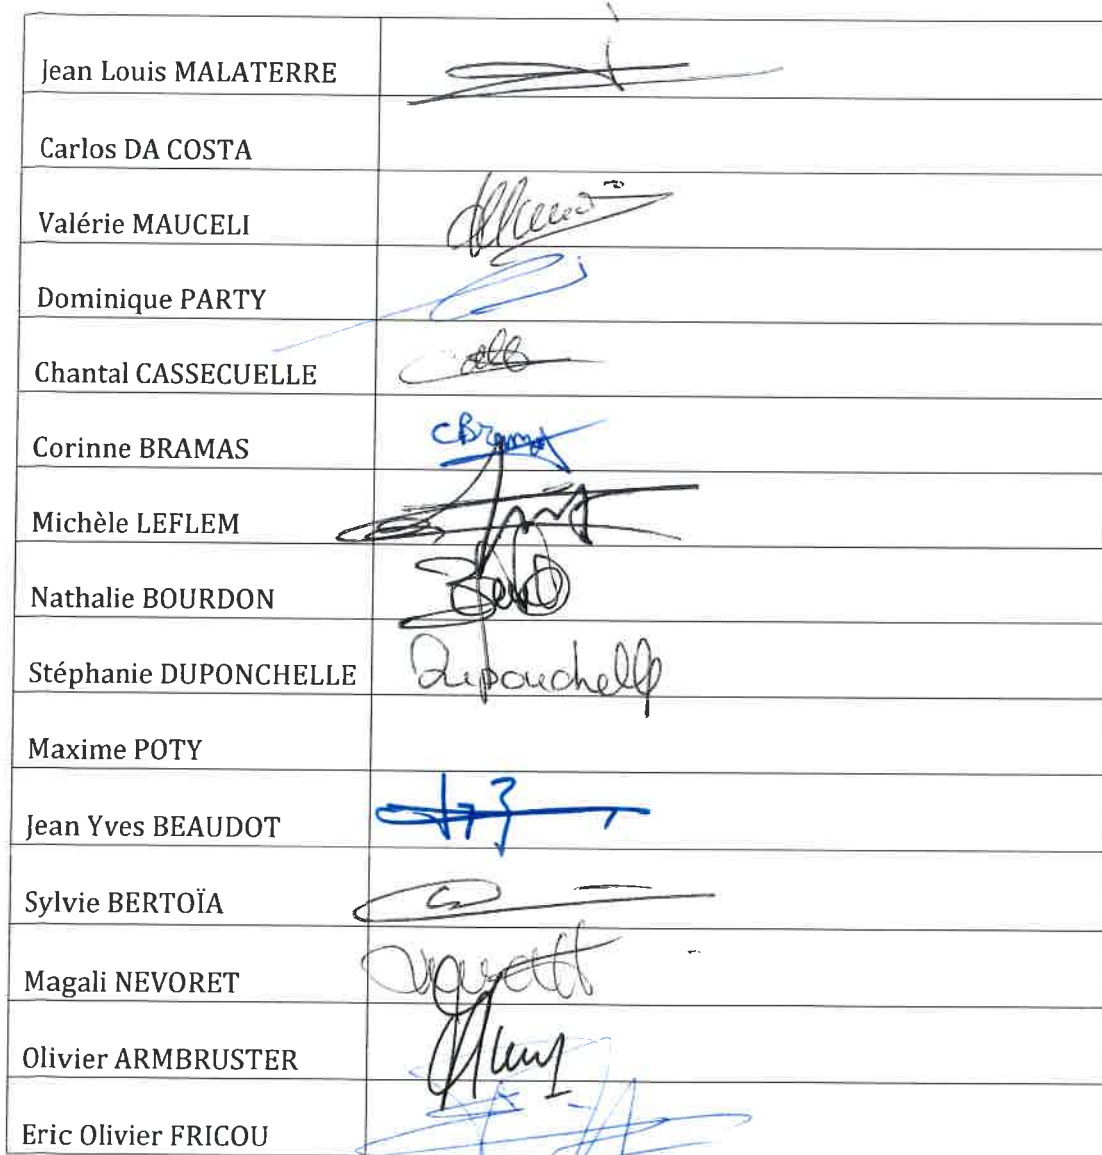 Jean Louis MALATERRE
Carlos DA COSTA
Valérie MAUCELI
Dominique PARTY
Chantal CASSECUELLE
Corinne BRAMAS
CBramas
Michèle LEFLEM
Nathalie BOURDON
Stéphanie DUPONCHELLE
Duponchelle
Maxime POTY
Jean Yves BEAUDOT
Sylvie BERTOÏA
Magali NEVORET
Olivier ARMBRUSTER
Eric Olivier FRICOU